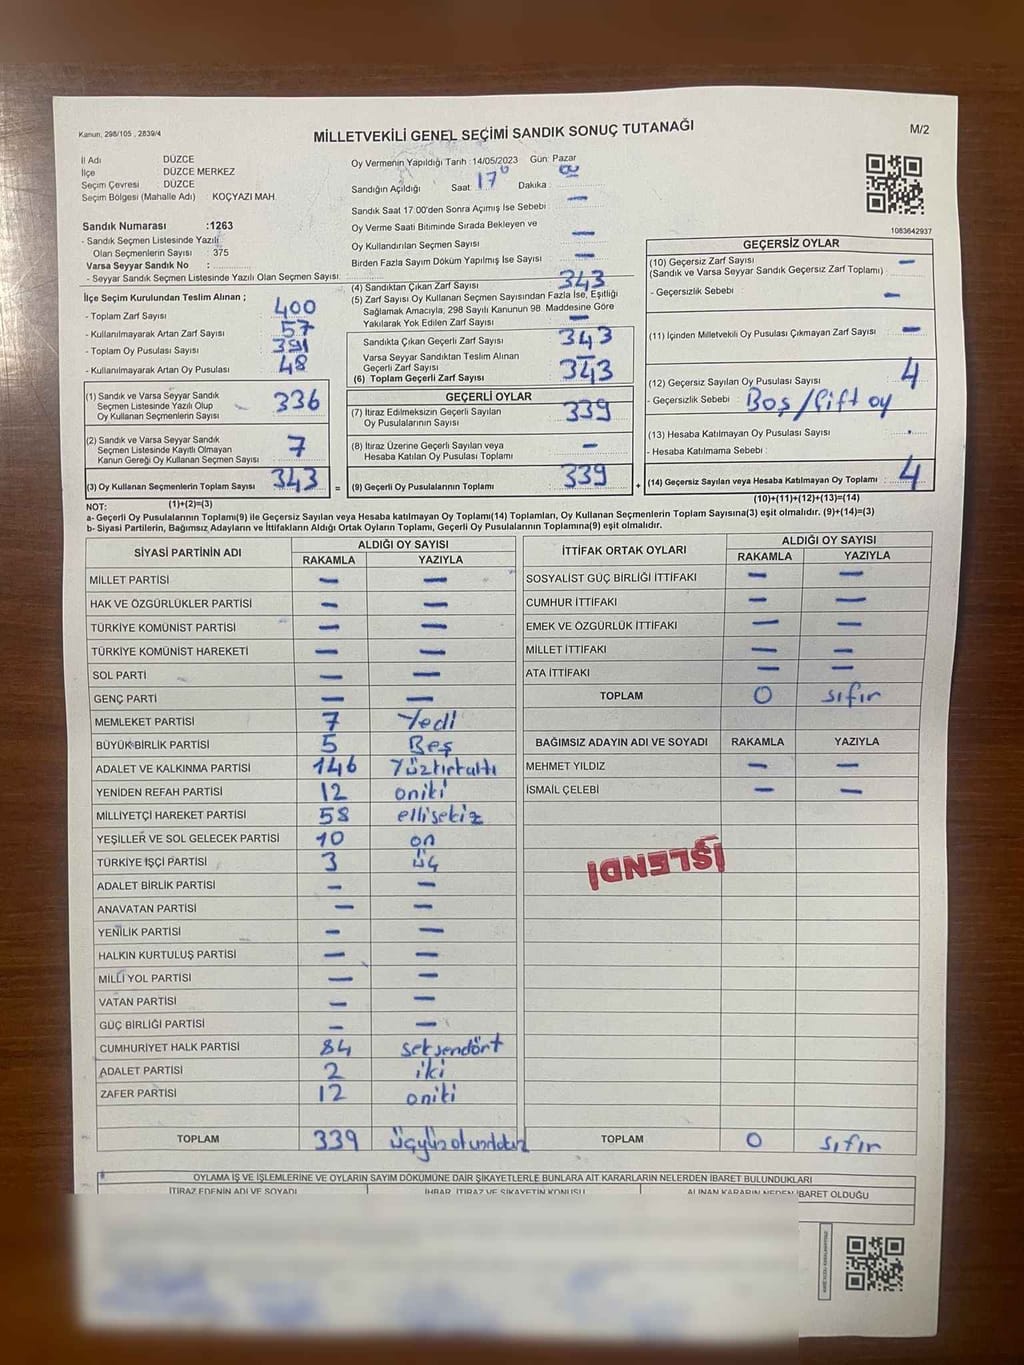 Kanun, 298/105 , 2839/4
MİLLETVEKİLİ GENEL SEÇİMİ SANDIK SONUÇ TUTANAĞI
M/2
İl Adı DÜZCE
İlçe DÜZCE MERKEZ
Seçim Çevresi DÜZCE
Seçim Bölgesi (Mahalle Adı) : KOÇYAZI MAH.
Oy Vermenin Yapıldığı Tarih :14/05/2023 Gün: Pazar
Sandığın Açıldığı Saat: 17 Dakika :
Sandık Saat 17:00'den Sonra Açımış İse Sebebi : —
Oy Verme Saati Bitiminde Sırada Bekleyen ve
Oy Kullandırılan Seçmen Sayısı : —
Birden Fazla Sayım Döküm Yapılmış İse Sayısı : —
1083642937
Sandık Numarası :1263
- Sandık Seçmen Listesinde Yazılı
Olan Seçmenlerin Sayısı : 375
Varsa Seyyar Sandık No :
- Seyyar Sandık Seçmen Listesinde Yazılı Olan Seçmen Sayısı:
İlçe Seçim Kurulundan Teslim Alınan ;
- Toplam Zarf Sayısı : 400
- Kullanılmayarak Artan Zarf Sayısı : 57
- Toplam Oy Pusulası Sayısı : 391
- Kullanılmayarak Artan Oy Pusulası : 48
(1) Sandık ve Varsa Seyyar Sandık
Seçmen Listesinde Yazılı Olup
Oy Kullanan Seçmenlerin Sayısı : 336
(2) Sandık ve Varsa Seyyar Sandık
Seçmen Listesinde Kayıtlı Olmayan
Kanun Gereği Oy Kullanan Seçmen Sayısı : 7
(3) Oy Kullanan Seçmenlerin Toplam Sayısı : 343
(1)+(2)=(3)
(4) Sandıktan Çıkan Zarf Sayısı : 343
(5) Zarf Sayısı Oy Kullanan Seçmen Sayısından Fazla İse, Eşitliği
Sağlamak Amacıyla; 298 Sayılı Kanunun 98. Maddesine Göre
Yakılarak Yok Edilen Zarf Sayısı : —
Sandıkta Çıkan Geçerli Zarf Sayısı : 343
Varsa Seyyar Sandıktan Teslim Alınan
Geçerli Zarf Sayısı : —
(6) Toplam Geçerli Zarf Sayısı : 343
GEÇERLİ OYLAR
(7) İtiraz Edilmeksizin Geçerli Sayılan
Oy Pusulalarının Sayısı : 339
(8) İtiraz Üzerine Geçerli Sayılan veya
Hesaba Katılan Oy Pusulası Toplamı : —
= (9) Geçerli Oy Pusulalarının Toplamı : 339 +
GEÇERSİZ OYLAR
(10) Geçersiz Zarf Sayısı : —
(Sandık ve Varsa Seyyar Sandık Geçersiz Zarf Toplamı)
- Geçersizlik Sebebi : —
(11) İçinden Milletvekili Oy Pusulası Çıkmayan Zarf Sayısı : —
(12) Geçersiz Sayılan Oy Pusulası Sayısı : 4
- Geçersizlik Sebebi : Boş/Çift oy
(13) Hesaba Katılmayan Oy Pusulası Sayısı :
- Hesaba Katılmama Sebebi :
(14) Geçersiz Sayılan veya Hesaba Katılmayan Oy Toplamı : 4
(10)+(11)+(12)+(13)=(14)
NOT:
a- Geçerli Oy Pusulalarının Toplamı(9) ile Geçersiz Sayılan veya Hesaba katılmayan Oy Toplamı(14) Toplamları, Oy Kullanan Seçmenlerin Toplam Sayısına(3) eşit olmalıdır. (9)+(14)=(3)
b- Siyasi Partilerin, Bağımsız Adayların ve İttifakların Aldığı Ortak Oyların Toplamı, Geçerli Oy Pusulalarının Toplamına(9) eşit olmalıdır.
SİYASİ PARTİNİN ADI ALDIĞI OY SAYISI
RAKAMLA YAZIYLA
MİLLET PARTİSİ — —
HAK VE ÖZGÜRLÜKLER PARTİSİ — —
TÜRKİYE KOMÜNİST PARTİSİ — —
TÜRKİYE KOMÜNİST HAREKETİ — —
SOL PARTİ — —
GENÇ PARTİ — —
MEMLEKET PARTİSİ 7 Yedi
BÜYÜK BİRLİK PARTİSİ 5 Beş
ADALET VE KALKINMA PARTİSİ 146 Yüzkırkaltı
YENİDEN REFAH PARTİSİ 12 oniki
MİLLİYETÇİ HAREKET PARTİSİ 58 ellisekiz
YEŞİLLER VE SOL GELECEK PARTİSİ 10 on
TÜRKİYE İŞÇİ PARTİSİ 3 üç
ADALET BİRLİK PARTİSİ — —
ANAVATAN PARTİSİ — —
YENİLİK PARTİSİ — —
HALKIN KURTULUŞ PARTİSİ — —
MİLLİ YOL PARTİSİ — —
VATAN PARTİSİ — —
GÜÇ BİRLİĞİ PARTİSİ — —
CUMHURİYET HALK PARTİSİ 84 seksendört
ADALET PARTİSİ 2 iki
ZAFER PARTİSİ 12 oniki
TOPLAM 339 üçyüzotuzdokuz
İTTİFAK ORTAK OYLARI ALDIĞI OY SAYISI
RAKAMLA YAZIYLA
SOSYALİST GÜÇ BİRLİĞİ İTTİFAKI — —
CUMHUR İTTİFAKI — —
EMEK VE ÖZGÜRLÜK İTTİFAKI — —
MİLLET İTTİFAKI — —
ATA İTTİFAKI — —
TOPLAM 0 sıfır
BAĞIMSIZ ADAYIN ADI VE SOYADI RAKAMLA YAZIYLA
MEHMET YILDIZ — —
İSMAİL ÇELEBİ — —
İŞLENDİ
TOPLAM 0 sıfır
OYLAMA İŞ VE İŞLEMLERİNE VE OYLARIN SAYIM DÖKÜMÜNE DAİR ŞİKAYETLERLE BUNLARA AİT KARARLARIN NELERDEN İBARET BULUNDUKLARI
İTİRAZ EDENİN ADI VE SOYADI İHBAR, İTİRAZ VE ŞİKAYETİN KONUSU ALINAN KARARIN NEDEN İBARET OLDUĞU